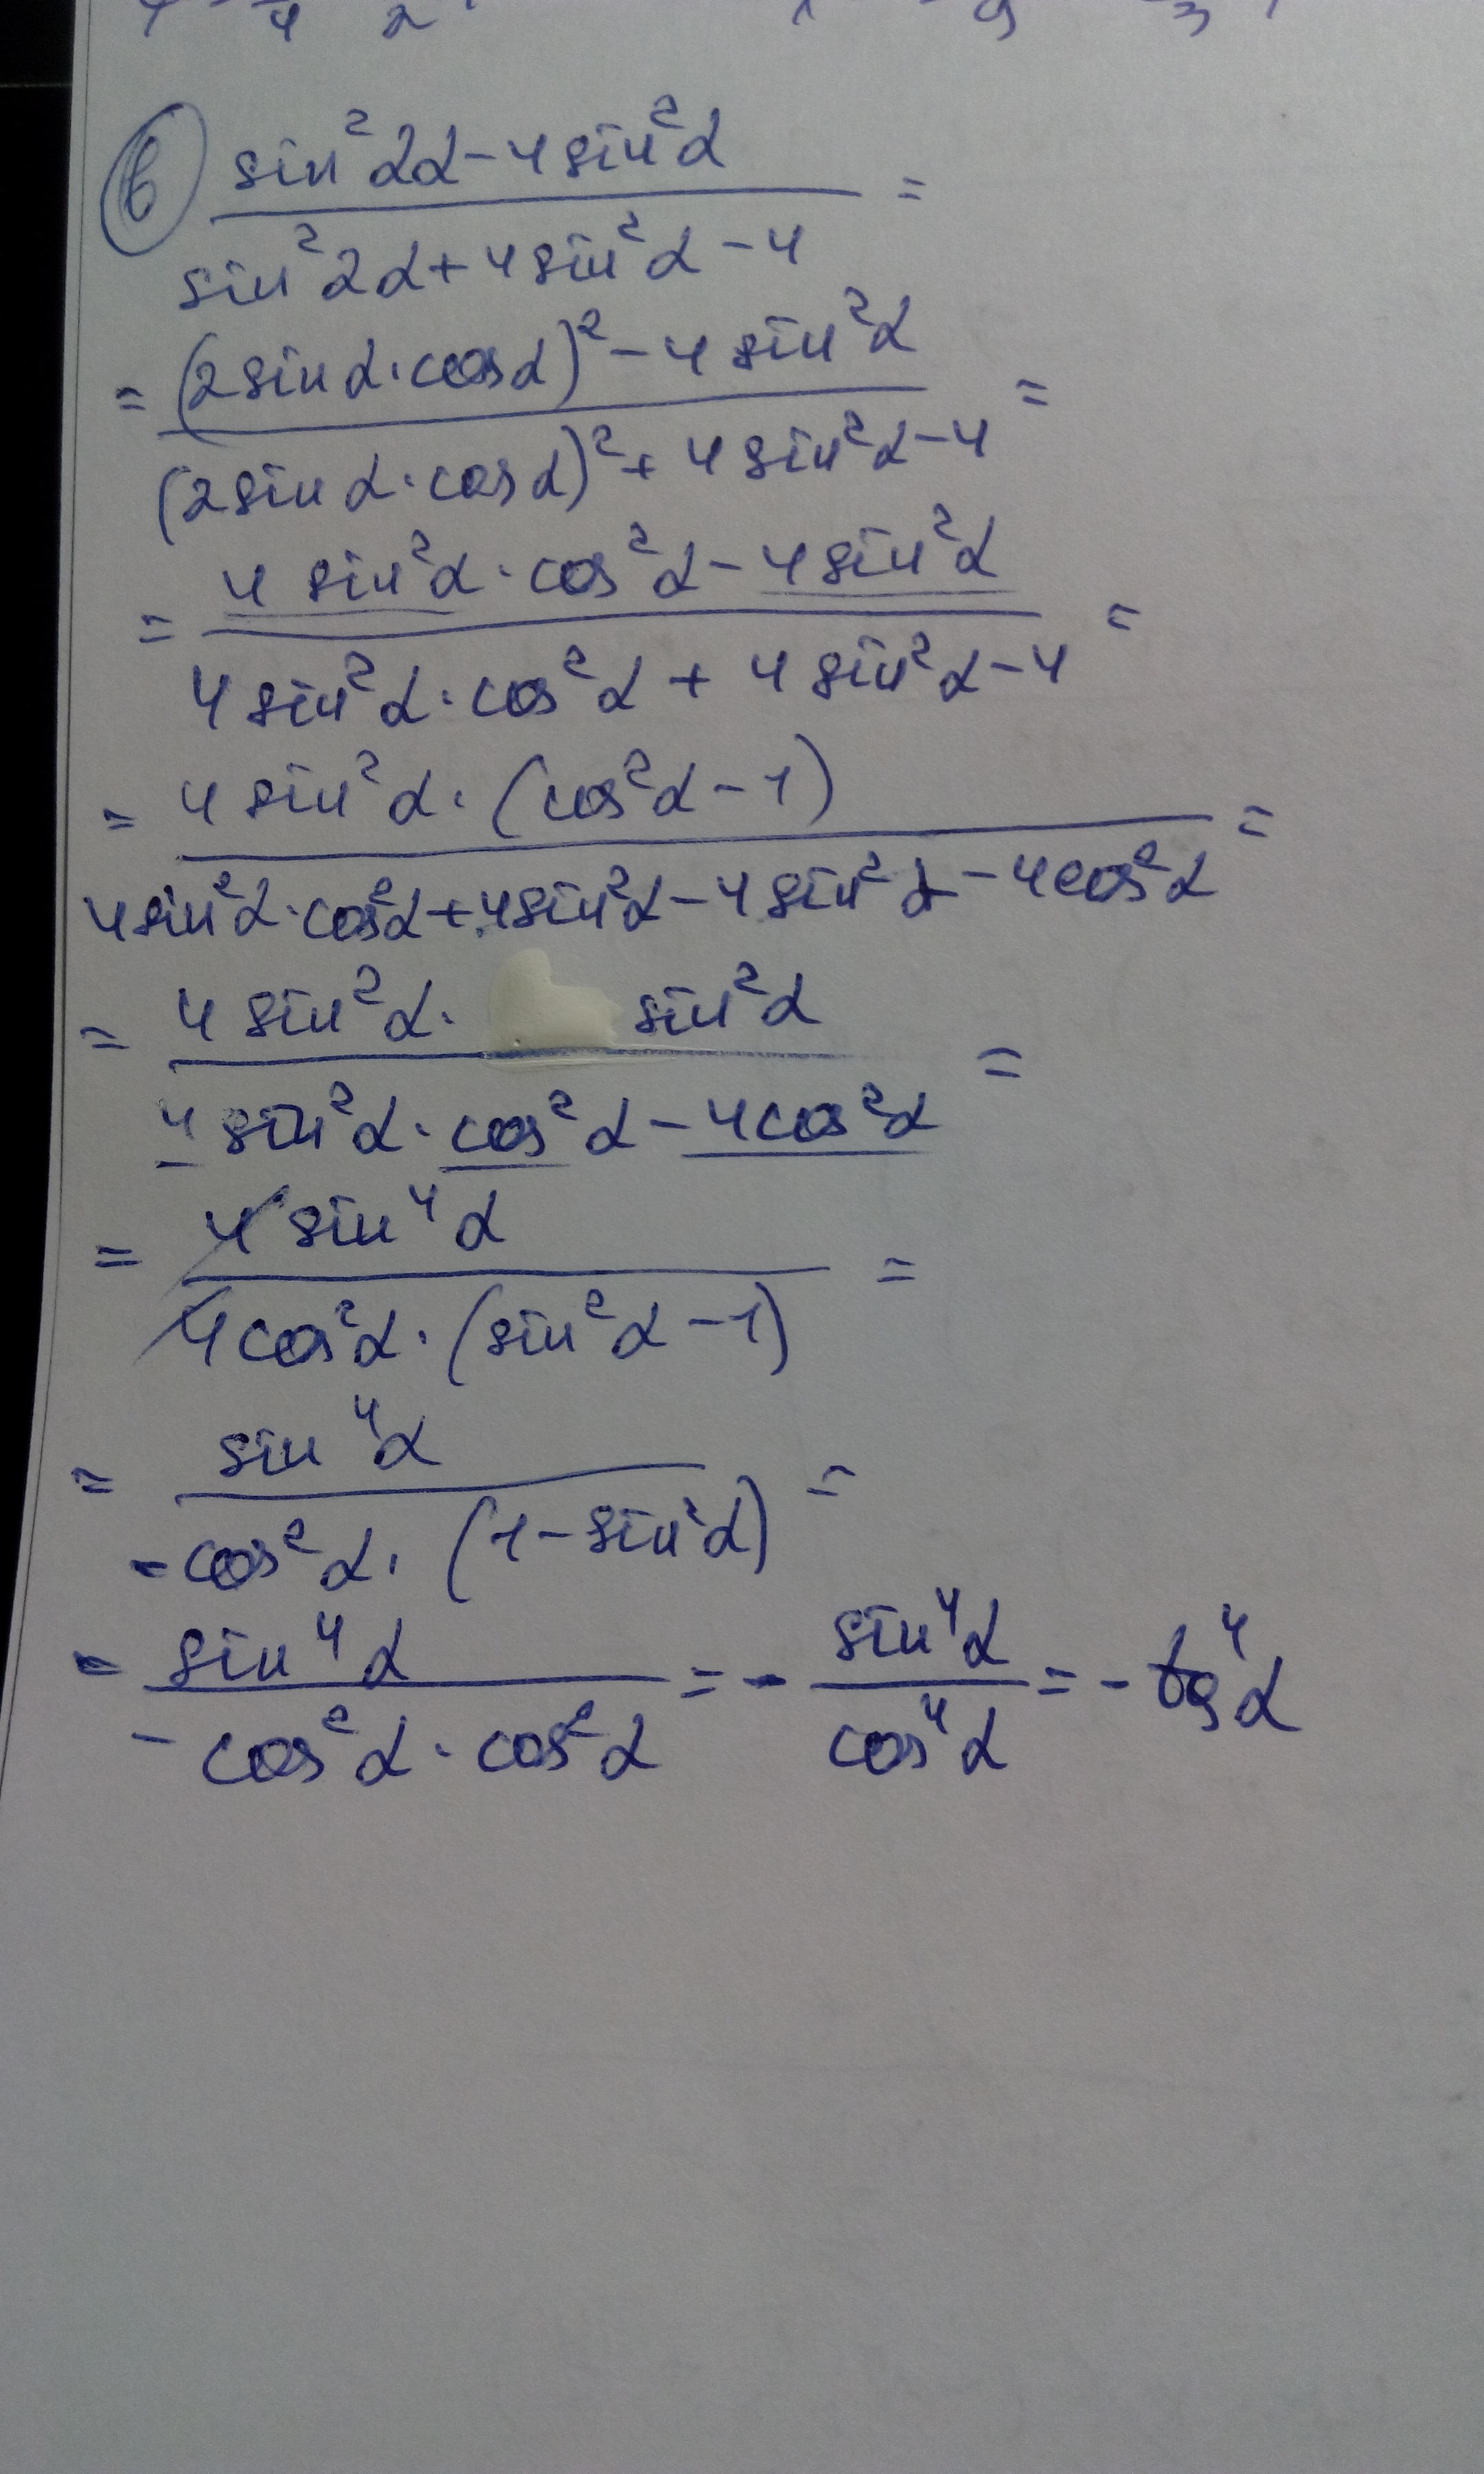 в) (sin²2α - 4sin²α) / (sin²2α + 4sin²α - 4) =
= ((2sinα·cosα)² - 4sin²α) / ((2sinα·cosα)² + 4sin²α - 4) =
= (4sin²α·cos²α - 4sin²α) / (4sin²α·cos²α + 4sin²α - 4) =
= (4sin²α·(cos²α - 1)) / (4sin²α·cos²α + 4sin²α - 4sin²α - 4cos²α) =
= (4sin²α· sin²α) / (4sin²α·cos²α - 4cos²α) =
= (4sin⁴α) / (4cos²α·(sin²α - 1)) =
= (sin⁴α) / (-cos²α·(1 - sin²α)) =
= (sin⁴α) / (-cos²α·cos²α) = - (sin⁴α) / (cos⁴α) = - tg⁴α